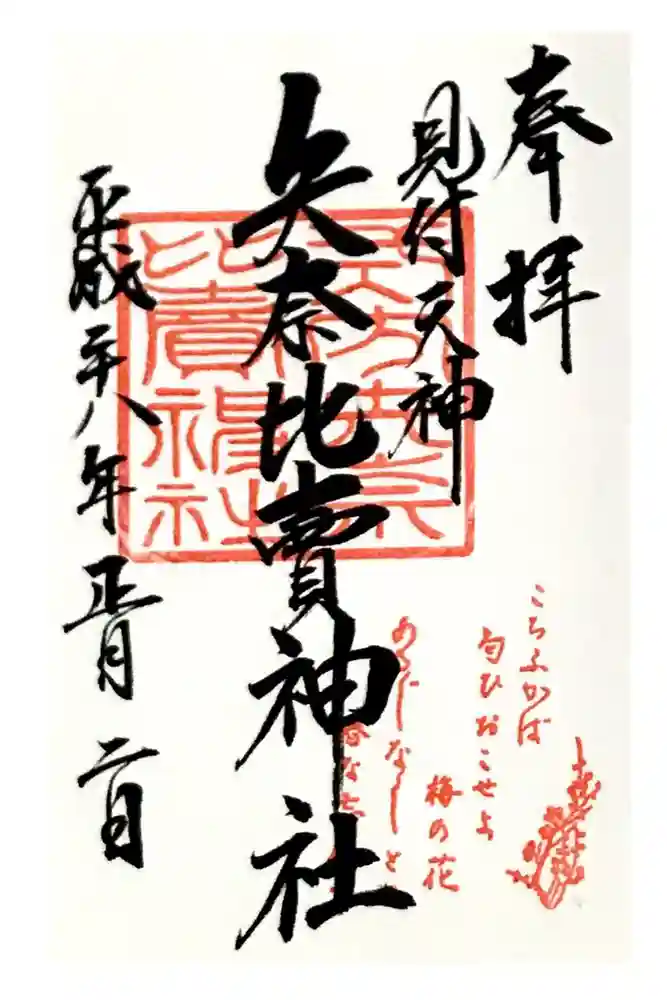 奉拝
見付天神
矢奈比賣神社
平成二十八年正月二日
こちふかば
匂ひおこせよ
梅の花
あるじなしと
春な
矢奈比賣神社